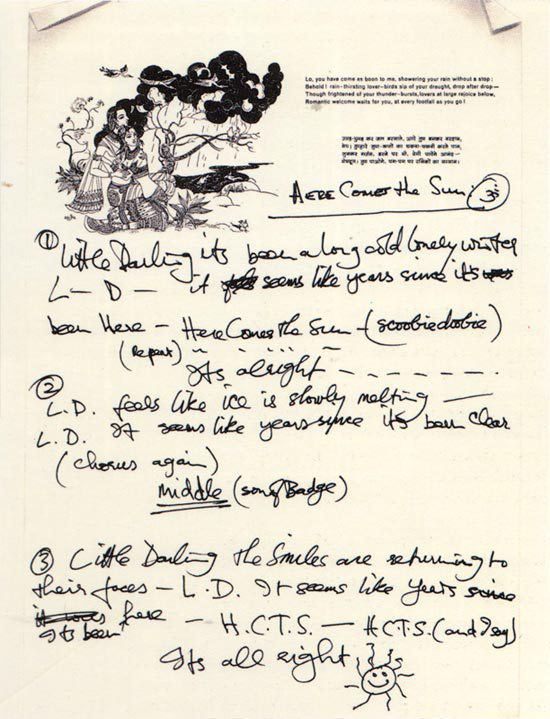 Lo, you have come as boon to me, showering your rain without a stop :
Behold ! rain-thirsting lover-birds sip of your draught, drop after drop—
Though frightened of your thunder-bursts, lovers at large rejoice below,
Romantic welcome waits for you, at every footfall as you go !
कर जल बरसाते, आये तुम बनकर वरदान,
मेघ! तुम्हारे करते पान,
सुनकर गर्जन, डरने पर भी, प्रेमी
पग-पग पर
HERE Comes the Sun. ॐ
① Little Darling its been a long cold lonely winter
L— D — it seems like years since its
been Here — Here Comes the Sun — (scoobiedoobie)
(Repeat)
Its alright — — — — — — —.
② L.D. feels like ice is slowly melting —
L.D. It seems like years since its been clear
(chorus again)
Middle (son of Badge)
③ Little Darling the Smiles are returning to
their faces — L.D. It seems like years since
it was here — H.C.T.S. — H.C.T.S. (and I say)
Its been
Its all right